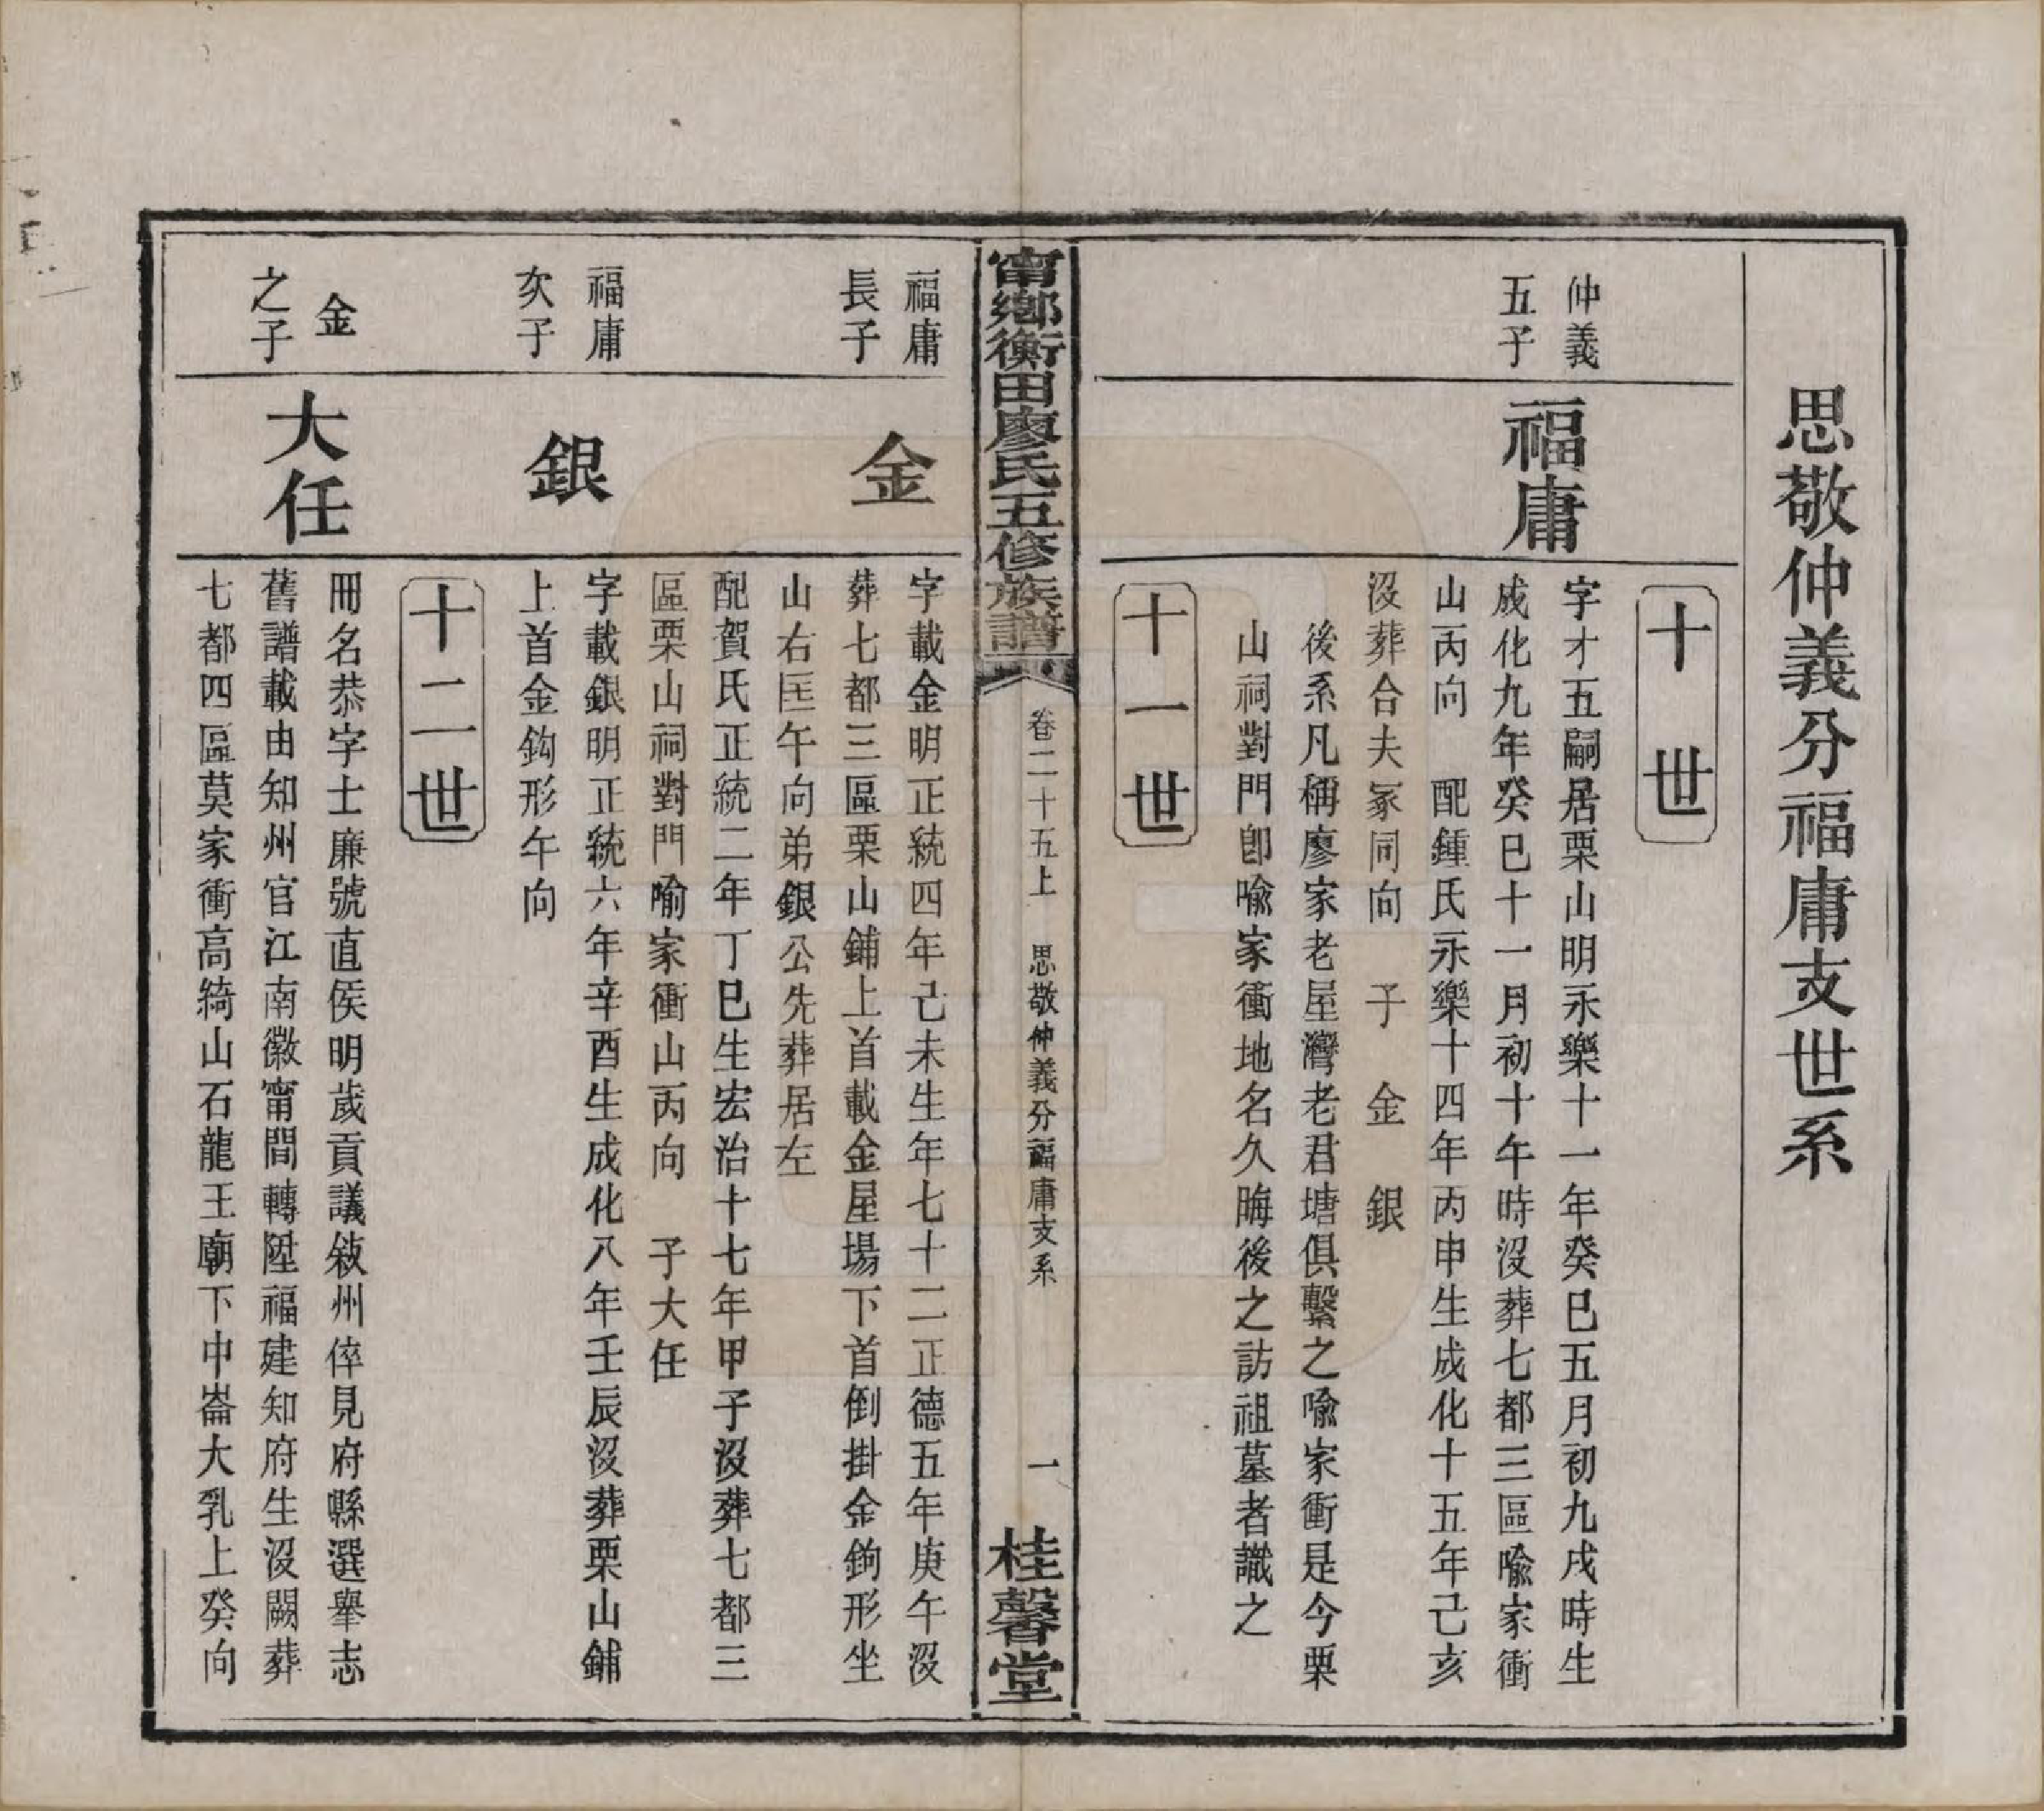 思敬仲義分福庸支世系
十世
仲義
五子
福庸
字才五嗣居栗山明永樂十一年癸巳五月初九戌時生
成化九年癸巳十一月初十午時沒葬七都三區喻家衝
山丙向　配鍾氏永樂十四年丙申生成化十五年己亥
沒葬合夫冢同向　子　金　銀
後系凡稱廖家老屋灣老君塘俱繫之喻家衝是今栗
山祠對門卽喻家衝地名久晦後之訪祖墓者識之
十一世
甯鄉衡田廖氏五修族譜
卷二十五上　思敬仲義分福庸支系
一
桂馨堂
福庸
長子
金
字載金明正統四年己未生年七十二正德五年庚午沒
葬七都三區栗山鋪上首載金屋場下首倒掛金鉤形坐
山右囯午向弟銀公先葬居左
配賀氏正統二年丁巳生宏治十七年甲子沒葬七都三
區栗山祠對門喻家衝山丙向　子大任
福庸
次子
銀
字載銀明正統六年辛酉生成化八年壬辰沒葬栗山鋪
上首金鈎形午向
十二世
金
之子
大任
冊名恭字士廉號直侯明歲貢議敘州倅見府縣選舉志
舊譜載由知州官江南徽甯間轉陞福建知府生沒闕葬
七都四區莫家衝高綺山石龍王廟下中崙大乳上癸向